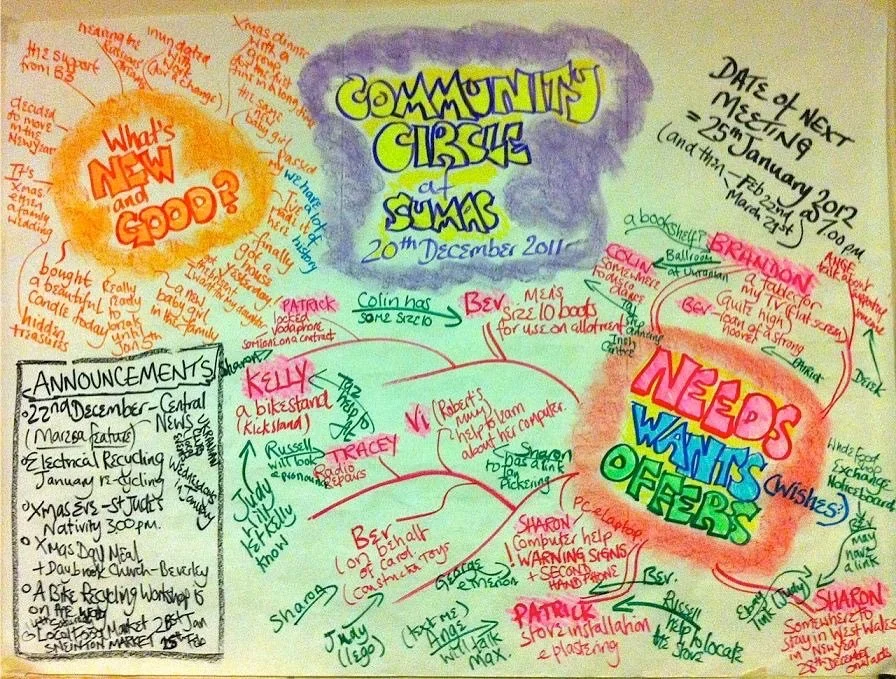 COMMUNITY
CIRCLE
at
SUMAC
20th December 2011
DATE of NEXT
MEETING
= 25th January 2012
(and then – Feb 22nd
March 21st)
7.00 pm
What's
NEW
and
GOOD?
hearing the
inundated
with
work
(for a change)
Xmas dinner
with a
group
for the first
time in a long time
the support
from
decided
to move
in the
New year
It's
Xmas
even
a family
wedding
the
new
baby girl
we have a lot of history
here
finally
got a
house
yesterday
for my daughter
a new
baby girl
in the family
Really
ready
to
work
until
Jan 5th
bought
a beautiful
candle today
hidden
treasures
ANNOUNCEMENTS
22nd December – Central
NEWS
(Marzea feature)
Electrical Recycling
January re-cycling
Wednesdays
in January
Xmas Eve – St Jude's
Nativity 3.00pm.
Xmas Day Meal
+ Daybrook Church – Beverley
A Bike Recycling Workshop is
on the
Local Food Market 28st Jan
SNEINTON MARKET 25th Feb
NEEDS
WANTS
(wishes)
OFFERS
PATRICK
locked
vodaphone
someone on a contract
Colin has
some size 10
BEV.
MENS
Size 10 boots
for use on allotment
Sharon
KELLY
a bikestand
(kickstand)
Judy
will
let Kelly
know
Russell
will look
TRACEY
Radio
Repairs
Vi
(Robert's
mum)
help to learn
about her computer.
Sharon
has a link
to
Pickering
BEV
(on behalf
of Carol
Constructa Toys
Sharon
Judy
(lego)
George
SHARON
Computer help
! WARNING SIGNS
+ SECOND
HAND PHONE
PC & laptop
PATRICK
stove installation
& plastering
(text me)
Ange
will talk
Max.
BEV.
Russell
help to locate
the stove
SHARON
Somewhere to
stay in West Wales
in New year
28th December
onwards
link (Judy)
BEV
may
have
a link
Exchange
Noticeboard
a bookshelf?
BRANDON
a table for
my TV (flat screen)
(quite high)
Ballroom
at Ukranian
COLIN
somewhere
BEV –
loan of a strong
hoover
PATRICK
ANGE
talk
about
supporting
someone
Derek